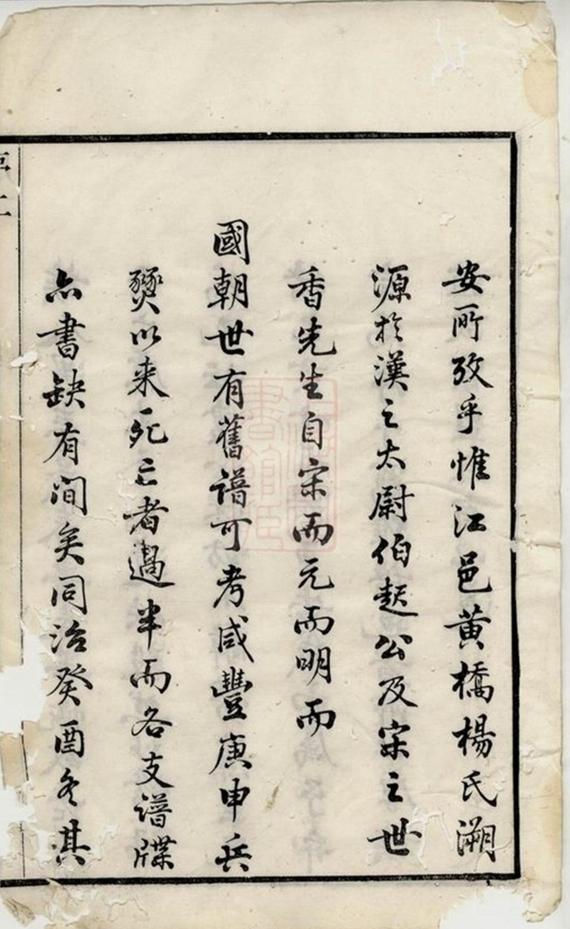 安所攷乎惟江邑黄橋楊氏溯
源於漢之太尉伯起公及宋之世
香先生自宋而元而明而
國朝世有舊譜可考咸豐庚申兵
燹以来死亡者過半而各支譜牒
亦書缺有间矣同治癸酉冬其